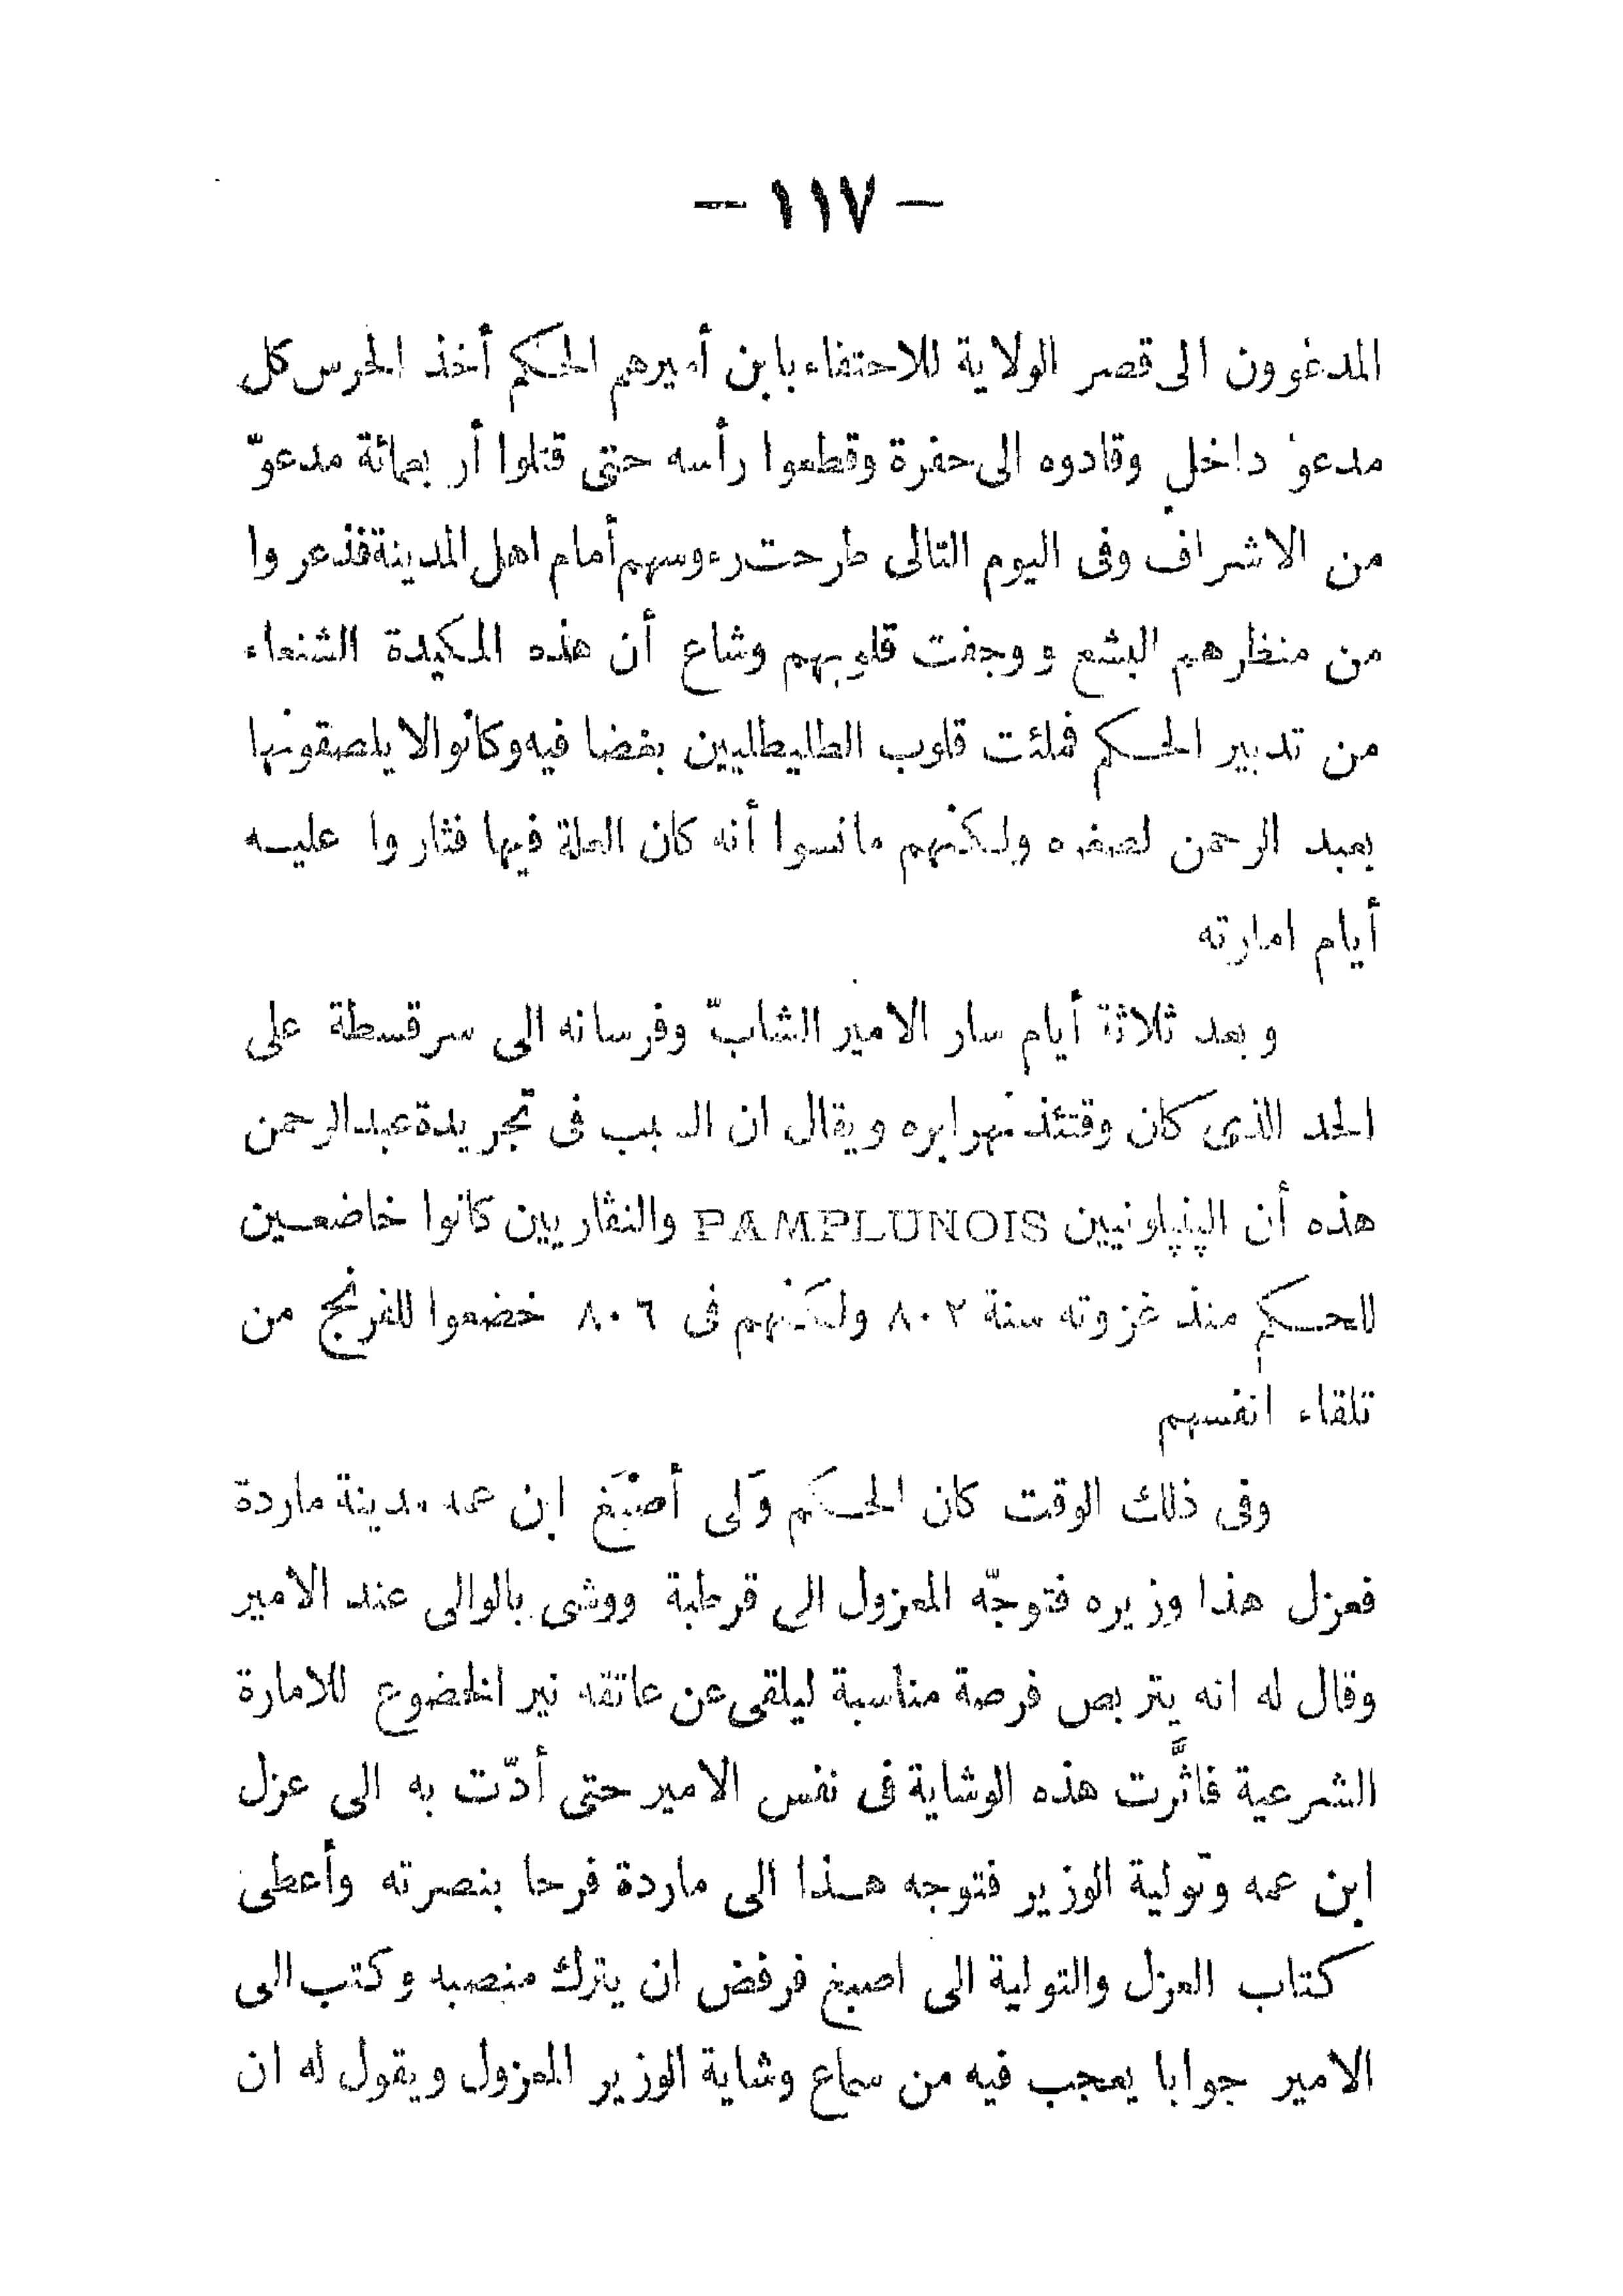 — ١١٧ —
المدعوون الى قصر الولاية للاحتفاء بابن أميرهم الحكم أخذ الحرس كل
مدعو داخل وقادوه الى حفرة وقطعوا رأسه حتى قتلوا أربعمائة مدعوّ
من الاشراف وفى اليوم التالى طرحت رءوسهم أمام اهل المدينة فذعروا
من منظرهم البشع ووجفت قلوبهم وشاع أن هذه المكيدة الشنعاء
من تدبير الحكم فملئت قلوب الطليطليين بغضا فيه وكانوا لا يلصقونها
بعبد الرحمن لصغره ولكنهم ما نسوا أنه كان العلة فيها فثاروا عليه
أيام امارته
وبعد ثلاثة أيام سار الامير الشابّ وفرسانه الى سرقسطة على
الحد الذى كان وقتئذ نهر ابره ويقال ان السبب فى تجريدة عبد الرحمن
هذه أن الپنپلونيين PAMPLUNOIS والنڤاريين كانوا خاضعين
للحكم منذ غزوته سنة ٨٠٢ ولكنهم فى ٨٠٦ خضعوا للفرنج من
تلقاء انفسهم
وفى ذلك الوقت كان الحكم وَلى أصْبَغ ابن عمه مدينة ماردة
فعزل هذا وزيره فتوجّه المعزول الى قرطبة ووشى بالوالى عند الامير
وقال له انه يتربص فرصة مناسبة ليلقى عن عاتقه نير الخضوع للامارة
الشرعية فاثَّرت هذه الوشاية فى نفس الامير حتى أدّت به الى عزل
ابن عمه وتولية الوزير فتوجه هذا الى ماردة فرحا بنصرته وأعطى
كتاب العزل والتولية الى اصبغ فرفض ان يترك منصبه وكتب الى
الامير جوابا يعجب فيه من سماع وشاية الوزير المعزول ويقول له ان